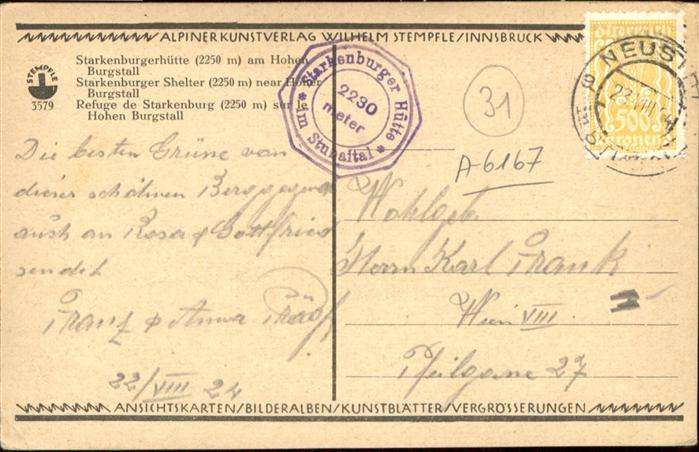 ALPINER KUNSTVERLAG WILHELM STEMPFLE/INNSBRUCK
STEMPFLE
3579
Starkenburgerhütte (2250 m) am Hohen
Burgstall
Starkenburger Shelter (2250 m) near Hoher
Burgstall
Refuge de Starkenburg (2250 m) sur le
Hohen Burgstall
Starkenburger Hütte
2230
meter
im Stubaital
31
A-6167
NEUST
500
Die besten Grüße von
dieser schönen Berggegend
auch an Rosa & Gottfried
sendet
Franz & Anna
22/VIII 24
Wohlgeb.
Herrn Karl Frank
Wien VIII
Pfeilgasse 27
ANSICHTSKARTEN/BILDERALBEN/KUNSTBLÄTTER/VERGRÖSSERUNGEN